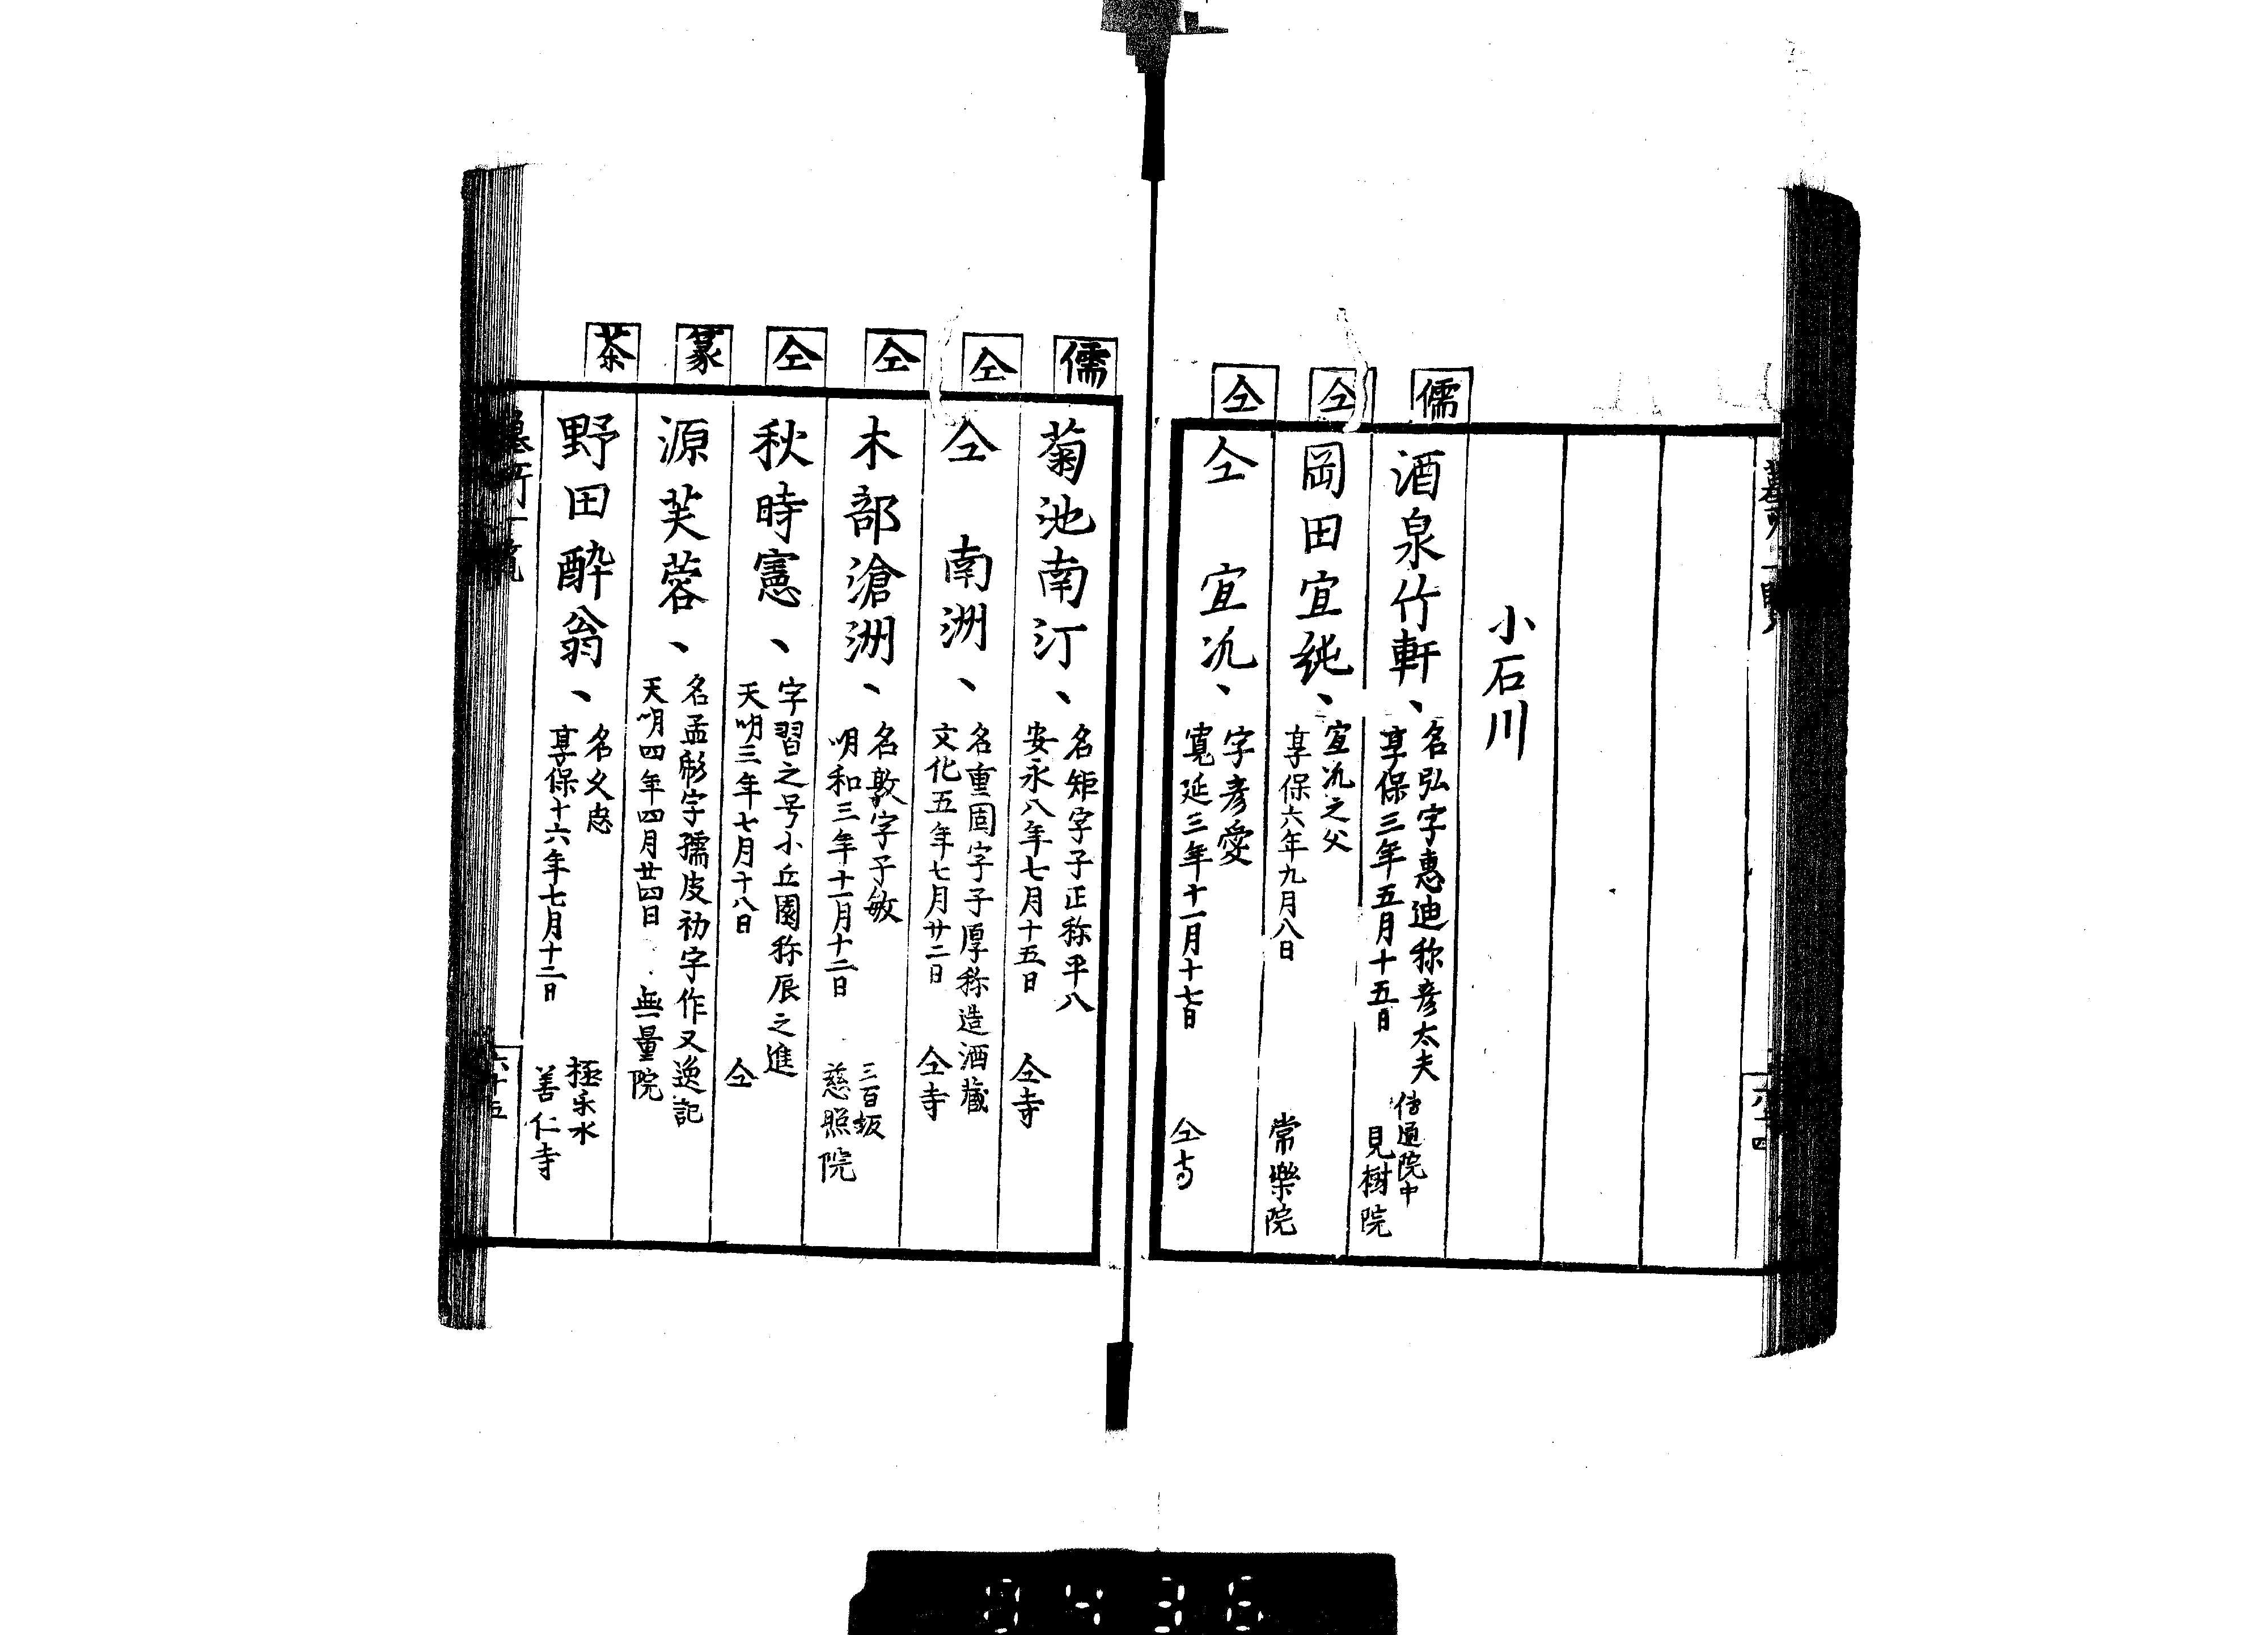 小石川
儒
酒泉竹軒、
名弘字惠迪称彦太夫
享保三年五月十五日
傳通院中
見樹院
仝
岡田宜純、
宜汎之父
享保六年九月八日
常樂院
仝
仝 宜汎、
字彦愛
寛延三年十一月十七日
仝寺
儒
菊池南汀、
名矩字子正称平八
安永八年七月十五日
仝寺
仝
仝 南洲、
名重固字子厚称造酒蔵
文化五年七月廿二日
仝寺
仝
木部滄洲、
名敦字子敏
明和三年十一月十二日
三百坂
慈照院
仝
秋時憲、
字習之号小丘園称辰之進
天明三年七月十八日
仝
篆
源芙蓉、
名孟彪字孺皮初字作又逸記
天明四年四月廿四日
無量院
茶
野田酔翁、
名文忠
享保十六年七月十二日
極楽水
善仁寺
六十五